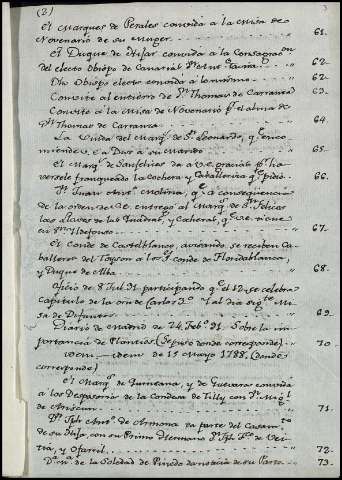 (2)
El Marques de Perales convida a la Misa de
Novenario de su Muger. 61.
El Duque de Hijar convida a la Consagraon
del electo Obispo de Canarias Dn Anto Tavira. 62.
Dho Obispo electo convida a lo mismo 62.
Convite al entierro de Dn Thomas de Carranza 63.
Convite a la Misa de Novenario pr el alma de
Dn Thomas de Carranza. 64.
La Viuda del Marqs de Sn Leonardo, qe
a Dios a su Marido 65.
El Marqs de Sn Felices da a V.E. gracias pr ha
versele franqueado la Cochera y Caballeriza qe pidio. 66.
Dn Juan Anto Molina, qe a consequencia
de la orden de V.E. entregó al Marqs de Sn Felices
las llaves de las Quadras, y Cocheras, qe V.E. tiene
en Sn Ildefonso 67.
El Conde de Castelblanco, avisando se reciben Ca-
balleros del Toyson a los Conde de Floridablanca,
y Duque de Alba 68.
Oficio de 8 Jul. 91 participando qe el 12 se celebra
Capitulo de la orn de Carlos 3o y al dia sigte Mi-
sa de Difuntos 69.
Diario de Madrid de 24 Febo 91. Sobre la im-
portancia de Plantios. (Se puso donde corresponde) 70.
Idem - idem de 15 Mayo 1788. (donde
corresponde)
El Marqs de Quintana, y de Guevara convida
a los Desposorios de la Condesa de Tilly con Dn Migl
de 71.
Dn Jph Anto de Armona da parte del Casamto
de su Hija, con su Primo Hermano Dn Jph Fco de Vei-
tia, y Ofarril 72.
Da Ma de la Soledad de Pineda da noticia de su Parto 73.